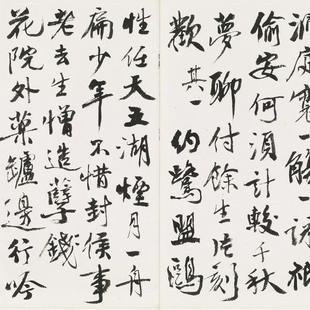 洞庭寬一觴一詠祇
偷安何須計較千秋
夢聊付餘生片刻
歡其一約鷺盟鷗
性任天五湖煙月一舟
扁少年不惜封侯事
老去生憎造孽錢
花院外藥鑪邊行吟